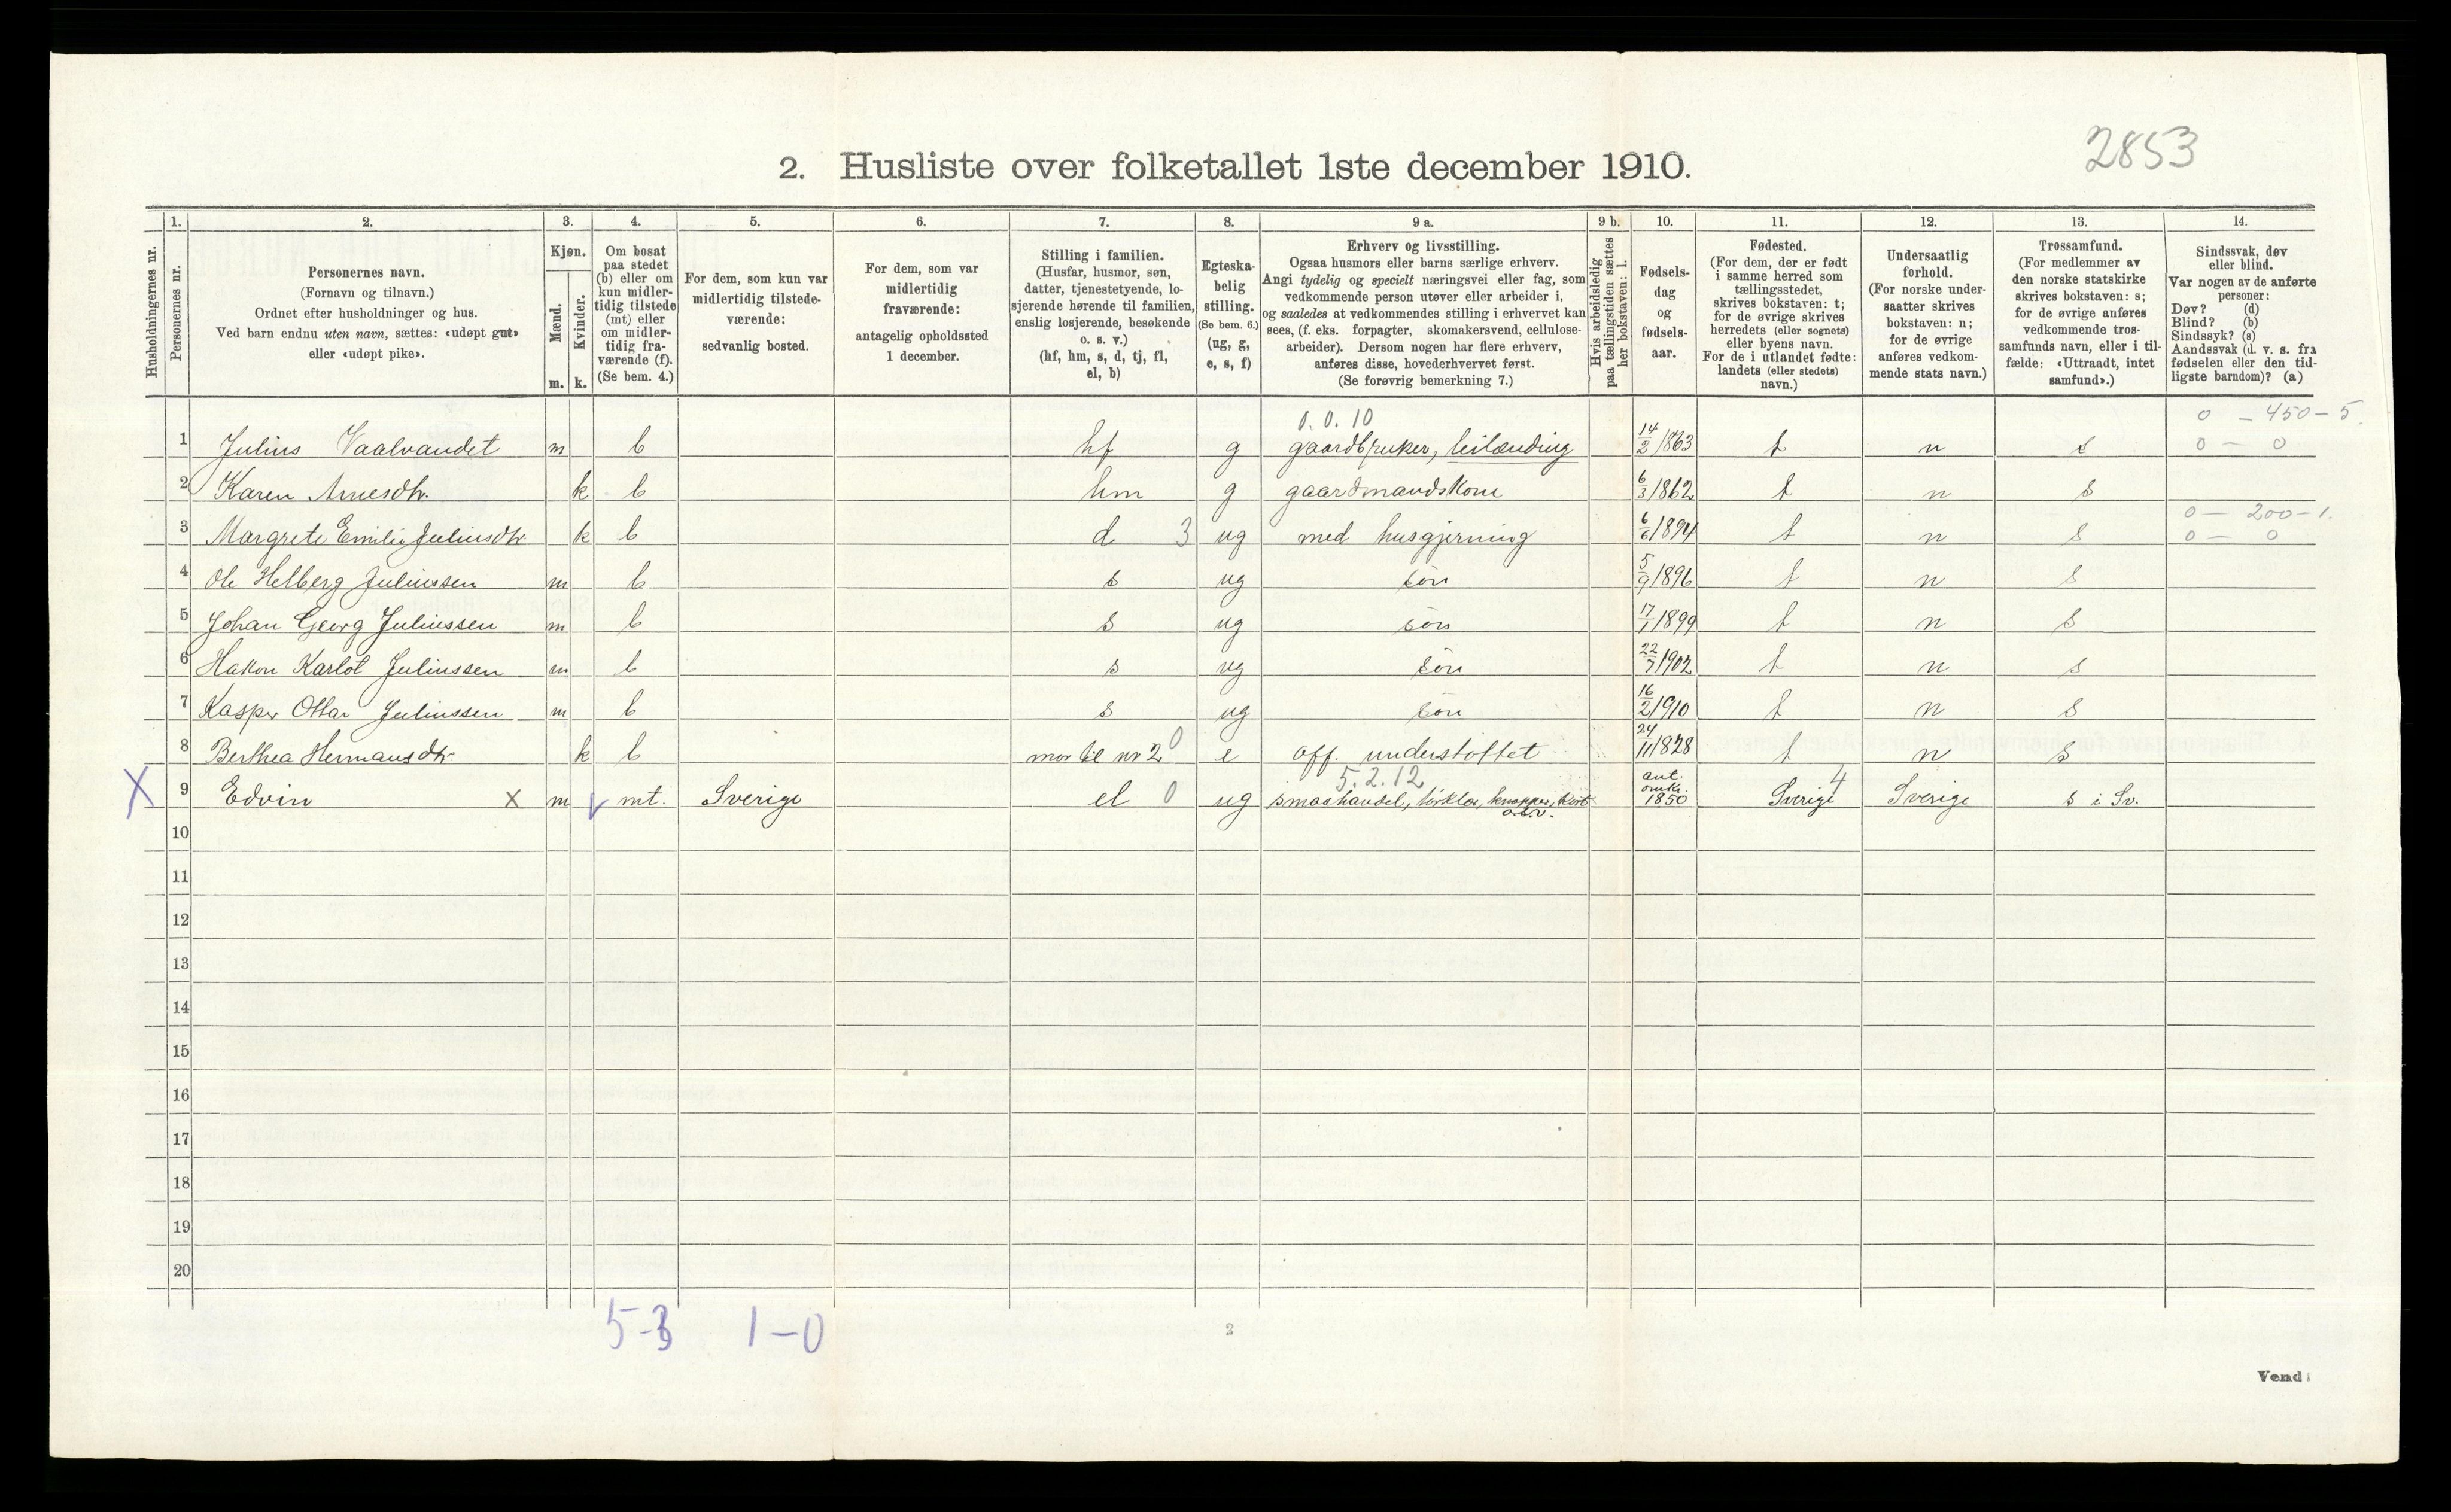 2853
2. Husliste over folketallet 1ste december 1910.
1. 2. 3. 4. 5. 6. 7. 8. 9 a. 9 b. 10. 11. 12. 13. 14.
Husholdningernes nr.
Personernes nr.
Personernes navn.
(Fornavn og tilnavn.)
Ordnet efter husholdninger og hus.
Ved barn endnu uten navn, sættes: «udøpt gut»
eller «udøpt pike».
Kjøn.
Mænd.
Kvinder.
m. k.
Om bosat
paa stedet
(b) eller om
kun midler-
tidig tilstede
(mt) eller
om midler-
tidig fra-
værende (f).
(Se bem. 4.)
For dem, som kun var
midlertidig tilstede-
værende:
sedvanlig bosted.
For dem, som var
midlertidig
fraværende:
antagelig opholdssted
1 december.
Stilling i familien.
(Husfar, husmor, søn,
datter, tjenestetyende, lo-
sjerende hørende til familien,
enslig losjerende, besøkende
o. s. v.)
(hf, hm, s, d, tj, fl,
el, b)
Egteska-
belig
stilling.
(Se bem. 6.)
(ug, g,
e, s, f)
Erhverv og livsstilling.
Ogsaa husmors eller barns særlige erhverv.
Angi tydelig og specielt næringsvei eller fag, som
vedkommende person utøver eller arbeider i,
og saaledes at vedkommendes stilling i erhvervet kan
sees, (f. eks. forpagter, skomakersvend, cellulose-
arbeider). Dersom nogen har flere erhverv,
anføres disse, hovederhvervet først.
(Se forøvrig bemerkning 7.)
Hvis arbeidsledig
paa tællingstiden sættes
her bokstaven: l.
Fødsels-
dag
og
fødsels-
aar.
Fødested.
(For dem, der er født
i samme herred som
tællingsstedet,
skrives bokstaven: t;
for de øvrige skrives
herredets (eller sognets)
eller byens navn.
For de i utlandet fødte:
landets (eller stedets)
navn.)
Undersaatlig
forhold.
(For norske under-
saatter skrives
bokstaven: n;
for de øvrige
anføres vedkom-
mende stats navn.)
Trossamfund.
(For medlemmer av
den norske statskirke
skrives bokstaven: s;
for de øvrige anføres
vedkommende tros-
samfunds navn, eller i til-
fælde: «Uttraadt, intet
samfund».)
Sindssvak, døv
eller blind.
Var nogen av de anførte
personer:
Døv? (d)
Blind? (b)
Sindssyk? (s)
Aandssvak (d. v. s. fra
fødselen eller den tid-
ligste barndom)? (a)
0.0.10 0 - 450 - 5.
1 Julius Vaalvandet m b hf g gaardbruker, leilænding 14/2 1863 t n s 0 - 0
2 Karen Arnesdtr. k b hm g gaardmandskone 6/3 1862 t n s
0 - 200 - 1.
3 Margrete Emilie Juliusdtr. k b d 3 ug med husgjerning 6/6 1894 t n s 0 - 0
4 Ole Helberg Juliussen m b s ug søn 5/9 1896 t n s
5 Johan Georg Juliussen m b s ug søn 17/1 1899 t n s
6 Hakon Karlot Juliussen m b s ug søn 22/7 1902 t n s
7 Kasper Ottar Juliussen m b s ug søn 16/2 1910 t n s
8 Berthea Hermansdtr. k b mor til nr 2 0 e off. understøttet 24/11 1828 t n s
5.2.12
X 9 Edvin x m mt. Sverige el 0 ug smaahandel, tørklær, knapper, kort o.s.v. ant. omkr. 1850 Sverige 4 Sverige s i Sv.
10
11
12
13
14
15
16
17
18
19
20
5-3 1-0
2
Vend!